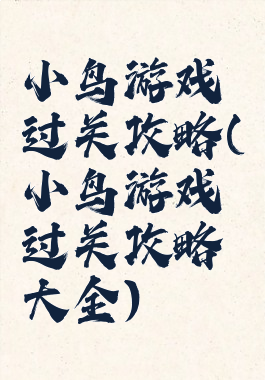 小鸟游戏
过关攻略(
小鸟游戏
过关攻略
大全)